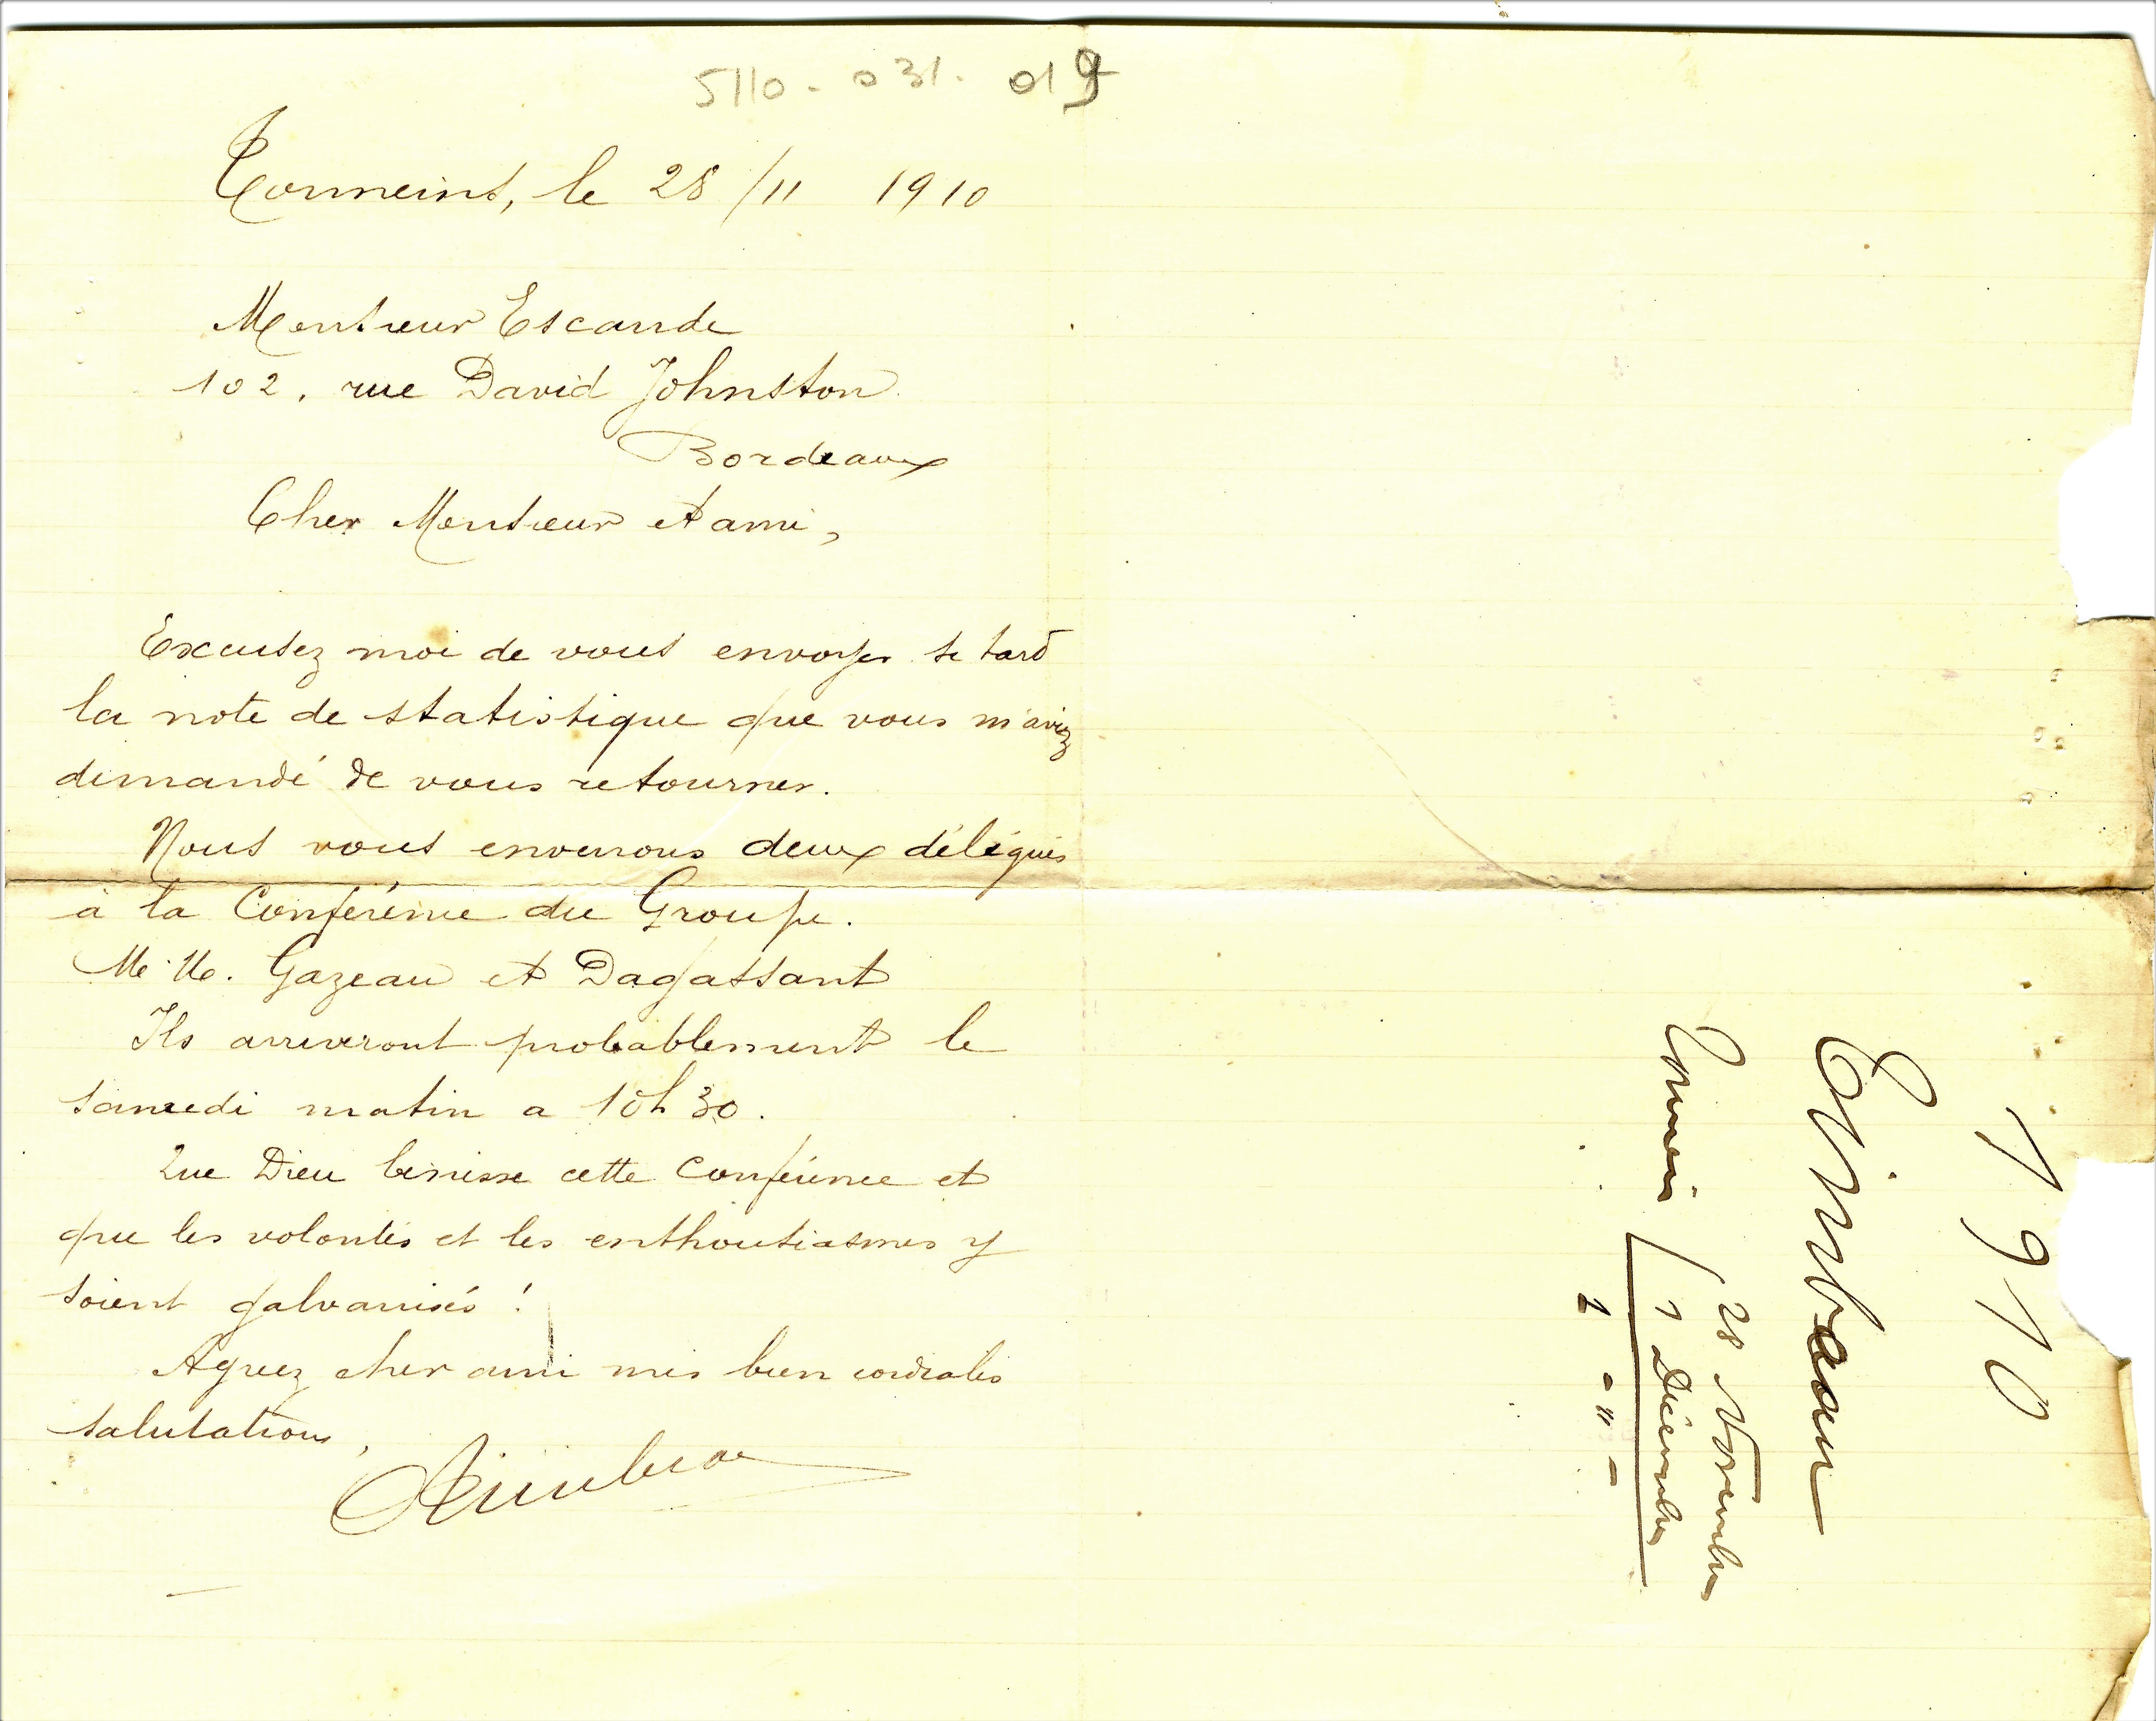 5110 - 031. 019
Tonneins, le 28/11 1910
Monsieur Escande
102, rue David Johnston
Bordeaux
Cher Monsieur et ami,
Excusez moi de vous envoyer si tard
la note de statistique que vous m'aviez
demandé de vous retourner.
Nous vous enverrons deux délégués
à la Conférence du Groupe.
M.M. Gazeau et Dagassant
Ils arriveront probablement le
samedi matin a 10h30.
Que Dieu bénisse cette Conférence et
que les volontés et les enthousiasmes y
soient galvanisés !
Agréez cher ami mes bien cordiales
salutations,
1910
28 Novembre
1 Décembre
1 - " -